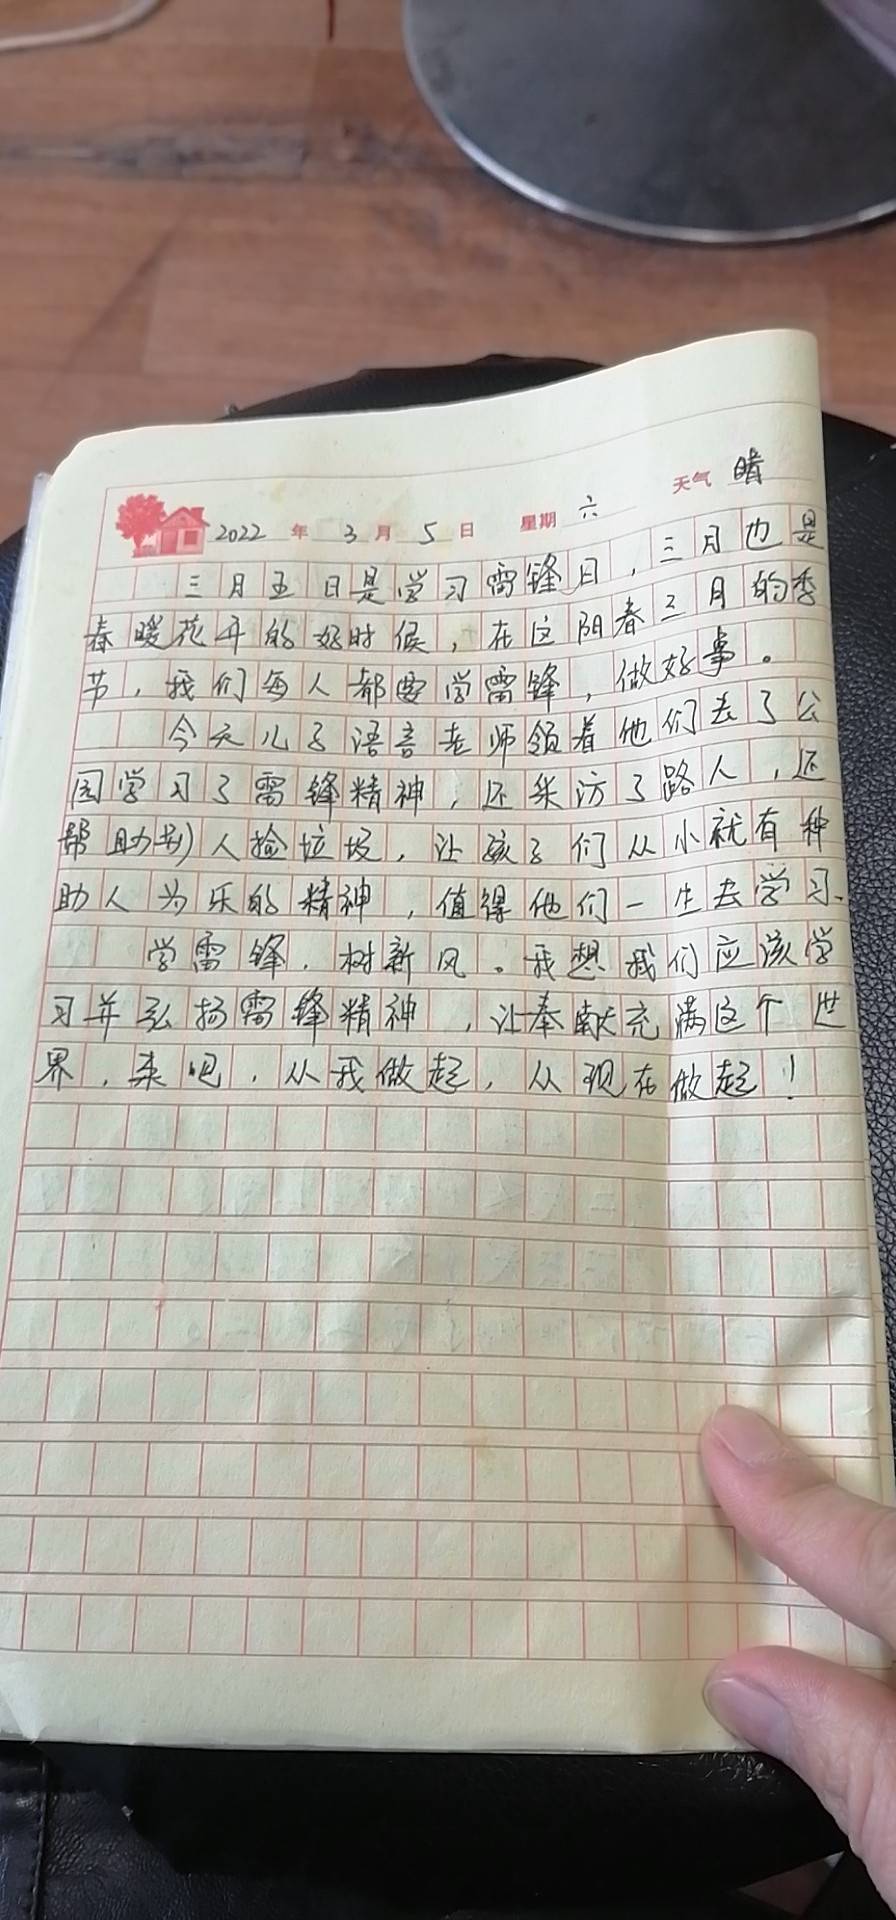 2022 年 3 月 5 日 星期 六 天气 晴
三月五日是学习雷锋日，三月也是
春暖花开的好时候，在这阳春三月的季
节，我们每人都要学雷锋，做好事。
今天儿子语言老师领着他们去了公
园学习了雷锋精神，还采访了路人，还
帮助别人捡垃圾，让孩子们从小就有种
助人为乐的精神，值得他们一生去学习、
学雷锋．树新风。我想我们应该学
习并弘扬雷锋精神，让奉献充满这个世
界，来吧，从我做起，从现在做起！